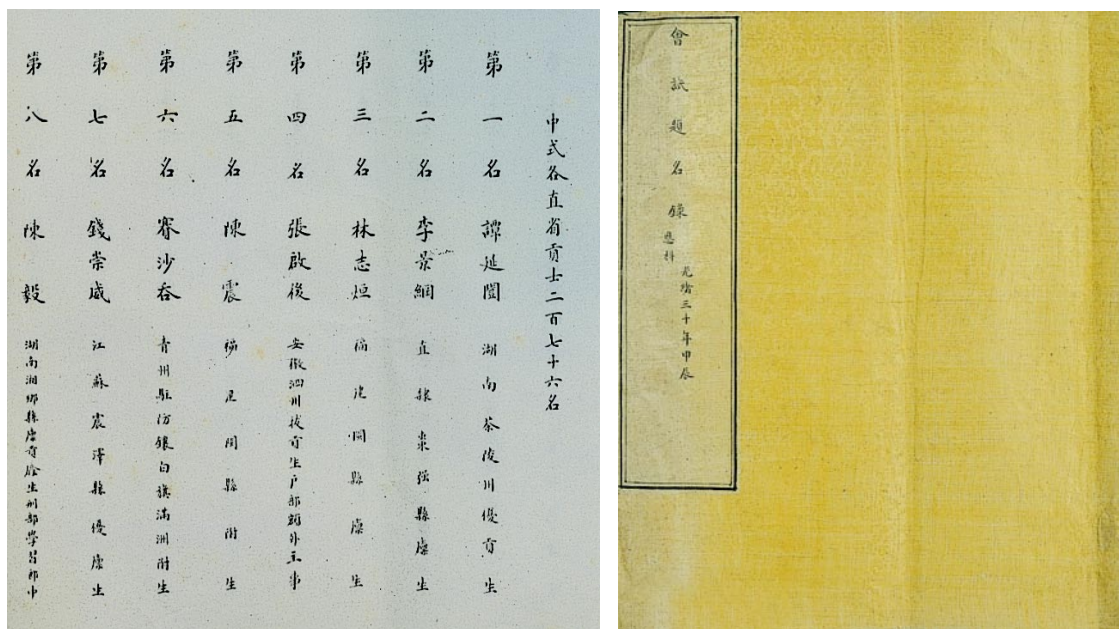 中式各直省貢士二百七十六名
第一名譚延闓湖南茶陵州優貢生
第二名李景綱直隸棗强縣廩生
第三名林志烜福建閩縣廩生
第四名張啟後安徽泗州拔貢生戶部額外主事
第五名陳震福建閩縣附生
第六名賽沙吞青州駐防鑲白旗滿洲附生
第七名錢崇威江蘇震澤縣優廩生
第八名陳毅湖南湘鄉縣廩貢廕生刑部學習郎中
會試題名錄
光緒三十年甲辰
恩科